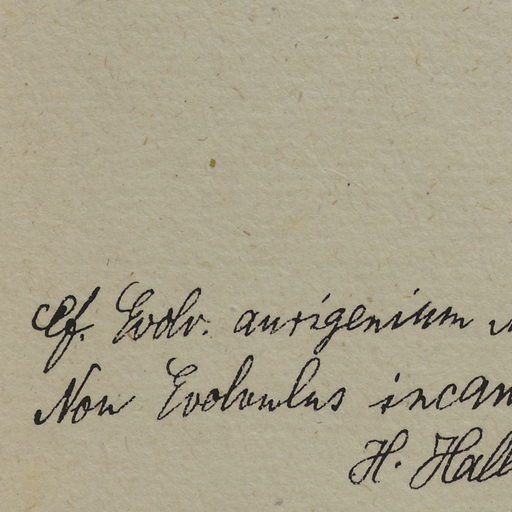 Cf. Evolv. aurigenium
Non Evolvulus incan
H. Hall